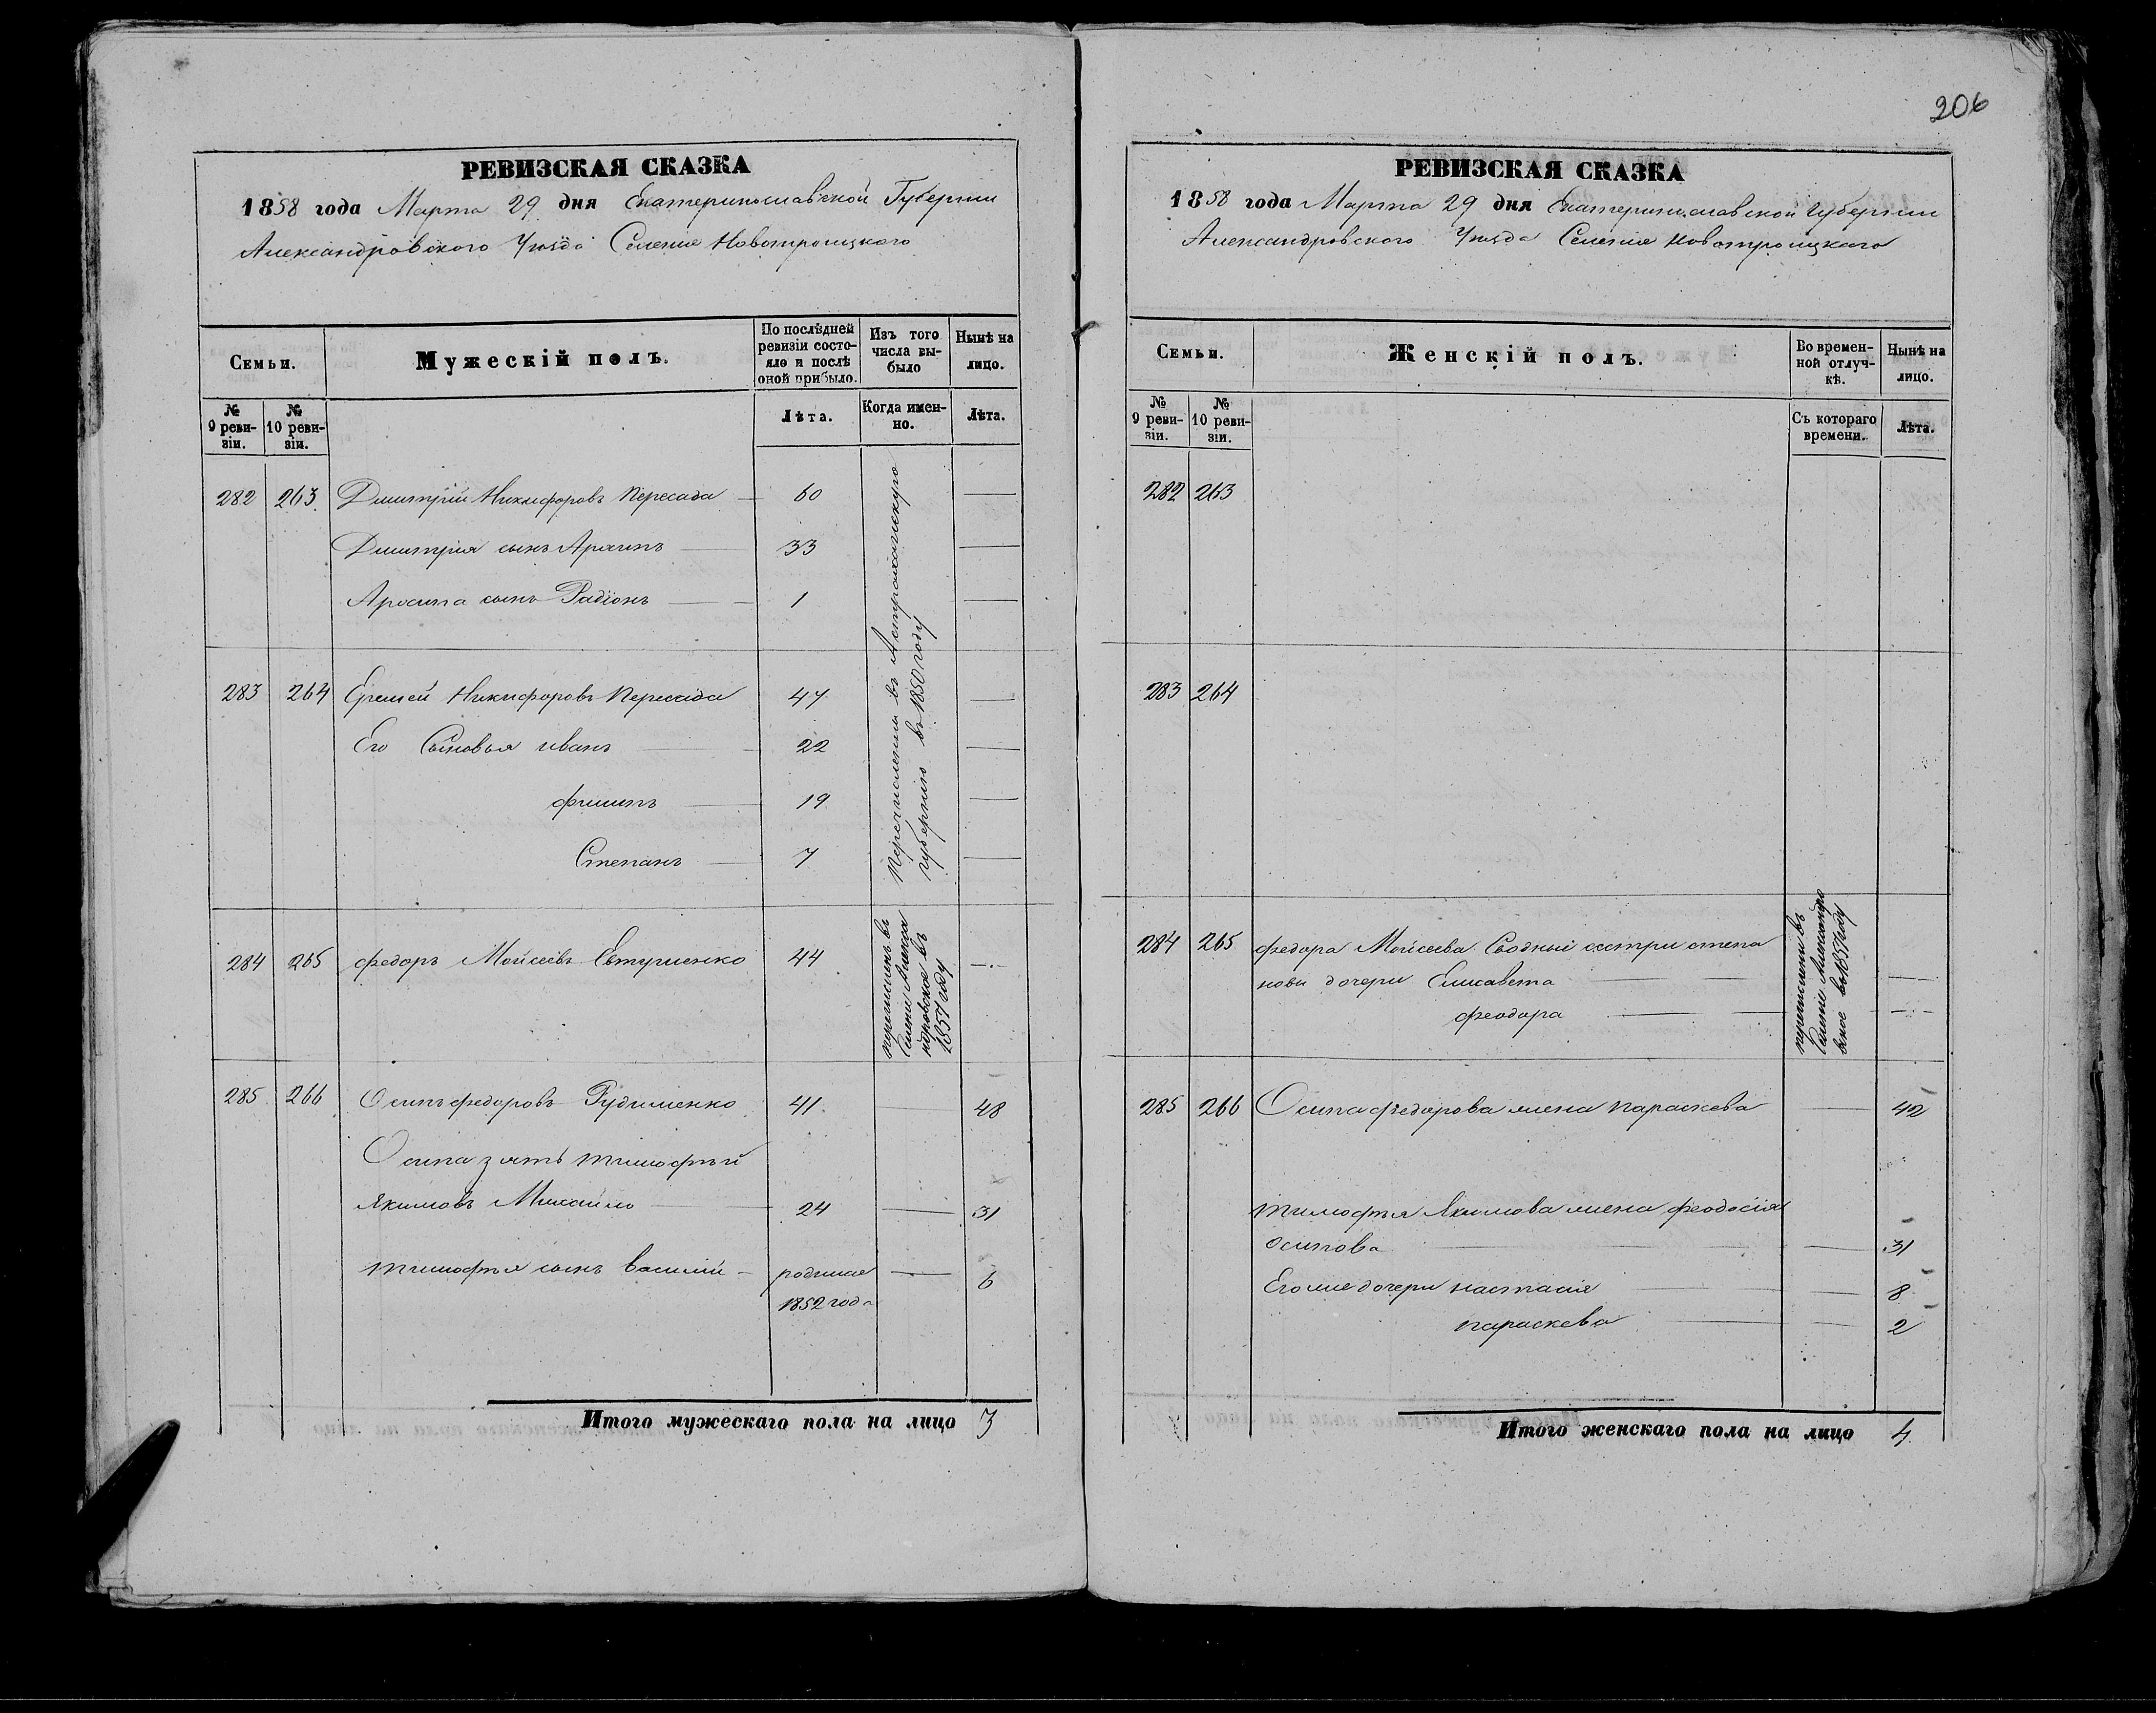 206
РЕВИЗСКАЯ СКАЗКА
1858 года Марта 29 дня Екатеринославской Губернии
Александровского Уезда Селение Новотроицкого
Семьи.
Мужескій полъ.
По послѣдней ревизіи состояло и послѣ оной прибыло.
Изъ того числа выбыло
Нынѣ на лицо.
№ 9 ревизіи.
№ 10 ревизіи.
Лѣта.
Когда именно.
Лѣта.
282 263 Дмитрій Никифоровъ Пересада — 60 —
Дмитрия сынъ Архипъ — 33 —
Архипа сынъ Радіонъ — 1 —
283 264 Еремей Никифоровъ Пересада 47 —
Его Сыновья иванъ — 22 —
филипъ — 19 —
Степанъ — 7 —
Перечислении въ Астраханскую
губернию въ 1850 году
284 265 федоръ Мойсеевъ Евтушенко 44 —
перечисленъ въ
Селение Алекса
ндровское въ
1851 году
285 266 Осипъ федоровъ Рудименко 41 — 48
Осипа зять тимофѣй
Якимовъ Михайло — 24 — 31
тимофѣя сынъ василій — родился — 6
1852 года
Итого мужескаго пола на лицо 3
РЕВИЗСКАЯ СКАЗКА
1858 года Марта 29 дня Екатеринославской губернии
Александровского Уезда Селения Новотроицкаго
Семьи.
Женскій полъ.
Во временной отлучкѣ.
Нынѣ на лицо.
№ 9 ревизіи.
№ 10 ревизіи.
Съ котораго времени.
Лѣта.
282 263
283 264
284 265 федора Мойсеева Сводный сестри степа
нови дочери Елисавета —
феодора —
перечислени въ
Селение Александро
вское въ 1851 году
285 266 Осипа федорова жена параскева — 42
тимофѣя Якимова жена феодосія
осипова — 31
Его же дочери настасія — 8
параскева — 2
Итого женскаго пола на лицо 4